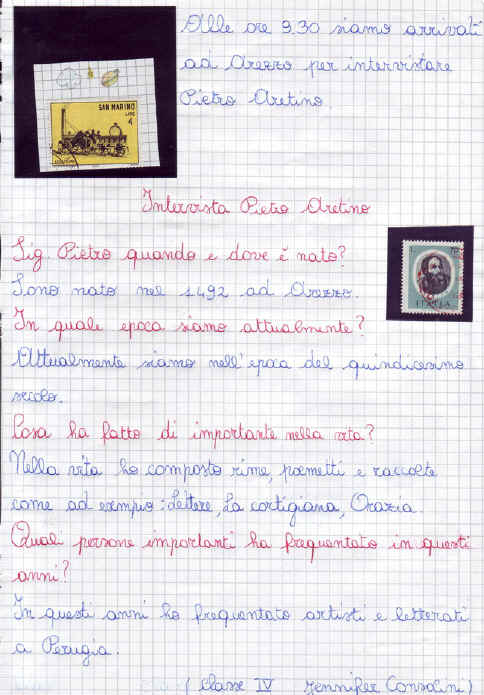 Alle ore 9.30 siamo arrivati
ad Arezzo per intervistare
Pietro Aretino.
SAN MARINO
LIRE
4
Intervista Pietro Aretino
Sig. Pietro quando e dove è nato?
Sono nato nel 1492 ad Arezzo.
ITALIA
In quale epoca siamo attualmente?
Attualmente siamo nell'epoca del quindicesimo
secolo.
Cosa ha fatto di importante nella vita?
Nella vita ho composto rime, poemetti e raccolte
come ad esempio: Lettere, La cortigiana, Orazia.
Quali persone importanti ha frequentato in questi
anni?
In questi anni ho frequentato artisti e letterati
a Perugia.
(Classe IV Jennifer Consolini)